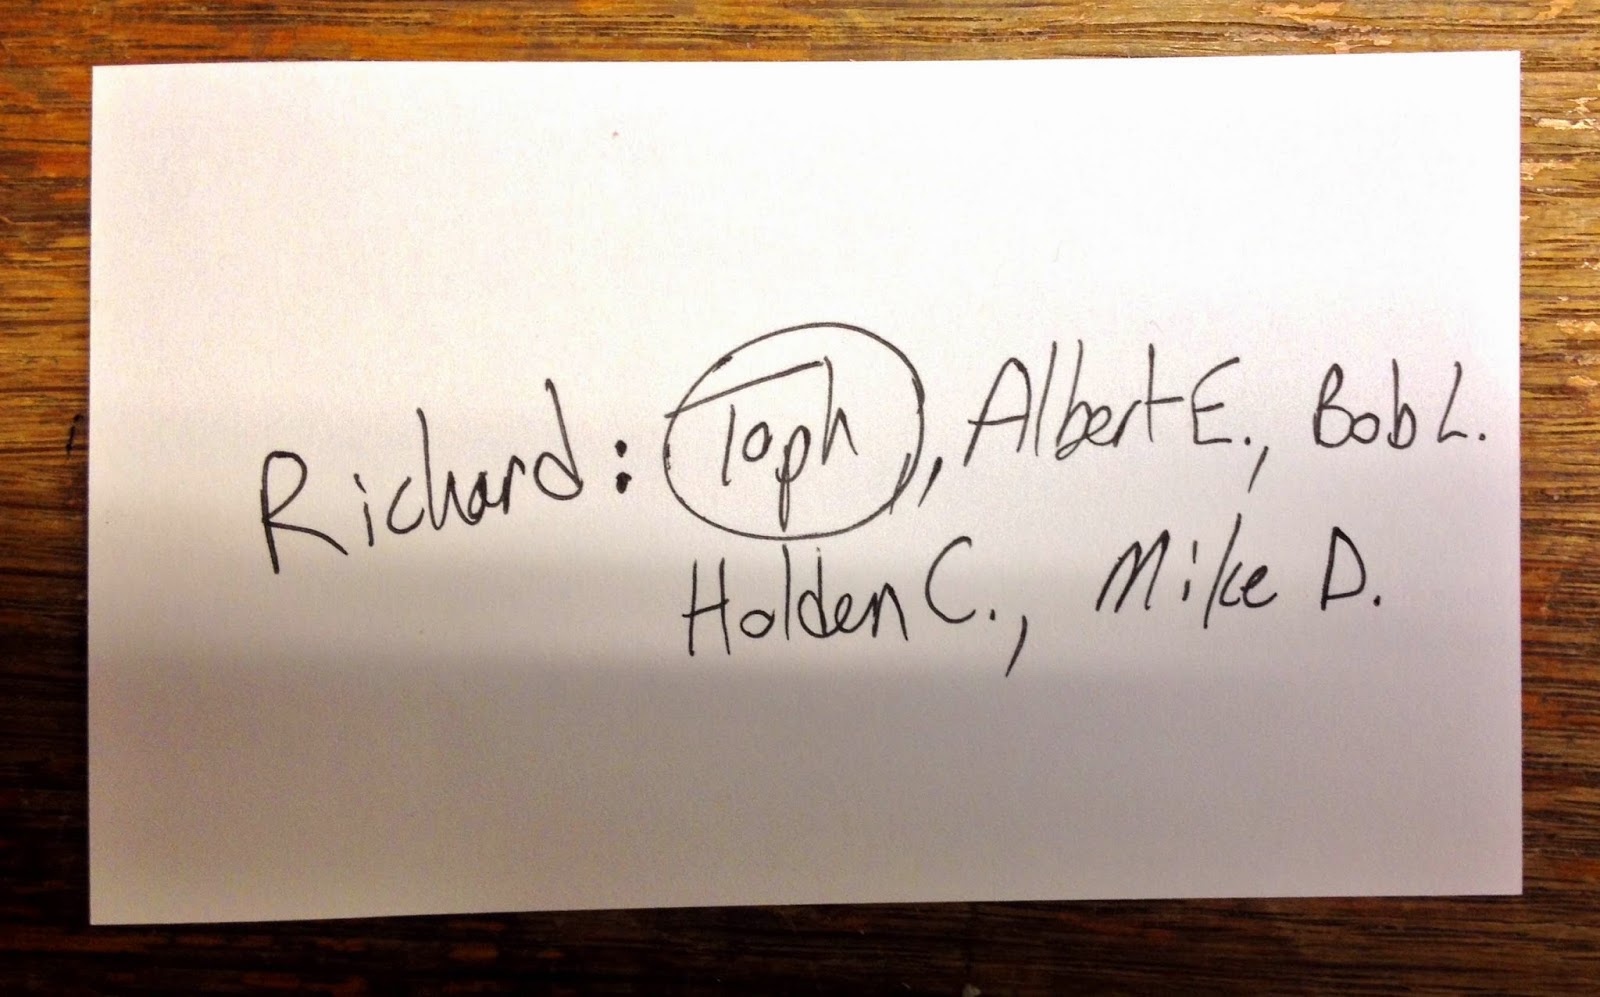 Richard: Toph, Albert E., Bob L.
Holden C., Mike D.